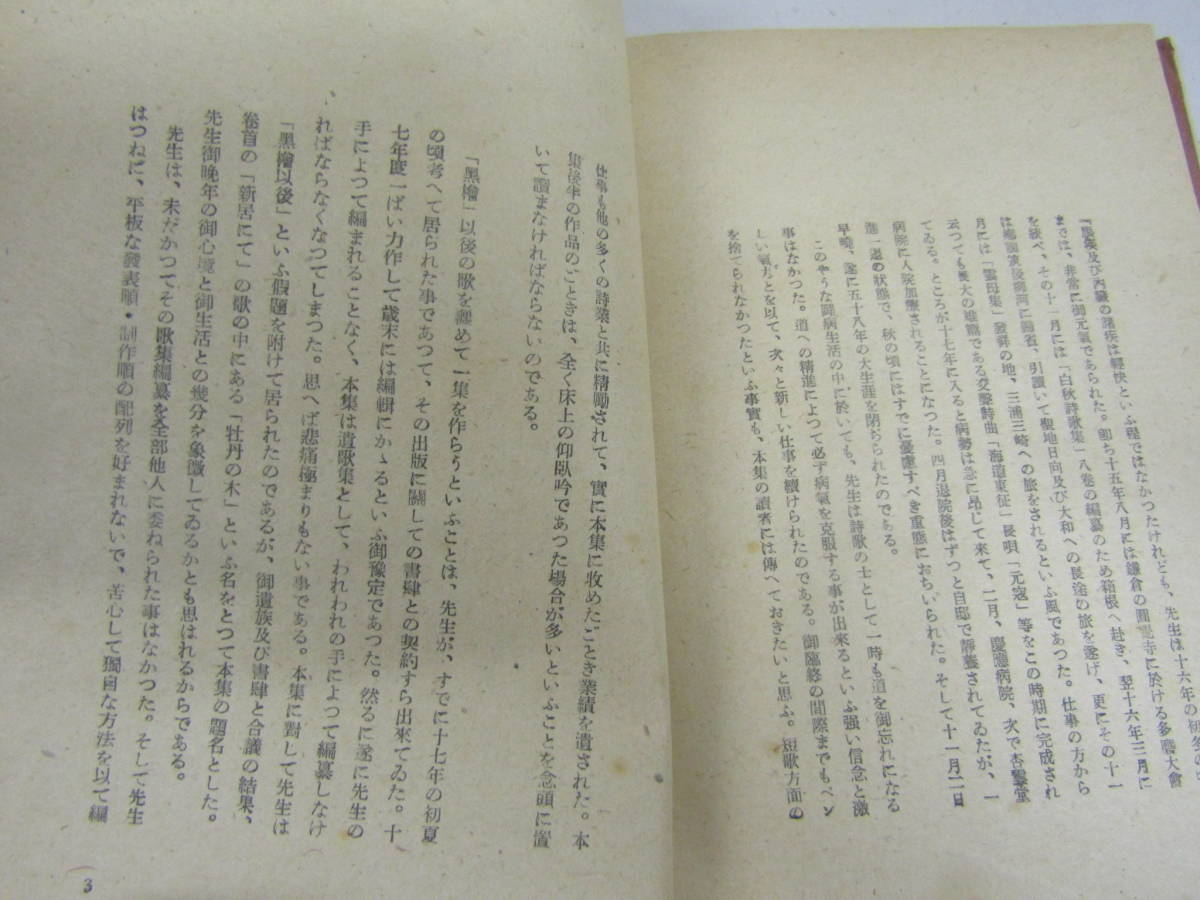 及び內臟の諸疾は輕快といふ程ではなかつたけれども、先生は十六年の初冬の
までは、非常に御元氣であられた。卽ち十五年八月には鎌倉の圓覺寺に於ける多磨大會
を統べ、その十一月には「白秋詩歌集」八卷の編纂のため箱根へ赴き、翌十六年三月に
は鄕國筑後柳河に歸省、引續いて聖地日向及び大和への長途の旅を遂げ、更にその十一
月には「雲母集」發祥の地、三浦三崎への旅をされるといふ風であつた。仕事の方から
云つても厖大の雄篇である交聲詩曲「海道東征」長唄「元寇」等をこの時期に完成され
てゐる。ところが十七年に入ると病勢は急に昂じて來て、二月、慶應病院、次で杏雲堂
病院に入院加療されることになつた。四月退院後はずつと自邸で靜養されてゐたが、一
進一退の狀態で、秋の頃にはすでに憂慮すべき重態におちいられた。そして十一月二日
早曉、遂に五十八年の大生涯を閉ぢられたのである。
このやうな鬪病生活の中に於いても、先生は詩歌の士として一時も道を御忘れになる
事はなかつた。道への精進によつて必ず病氣を克服する事が出來るといふ强い信念と激
しい氣力とを以て、次々と新しい仕事を續けられたのである。御臨終の間際までもペン
を捨てられなかつたといふ事實も、本集の讀者には傳へておきたいと思ふ。短歌方面の
仕事も他の多くの詩業と共に精勵されて、實に本集に收めたごとき業績を遺された。本
集後半の作品のごときは、全く床上の仰臥吟であつた場合が多いといふことを念頭に置
いて讀まなければならないのである。
「黑檜」以後の歌を纏めて一集を作らうといふことは、先生が、すでに十七年の初夏
の頃考へて居られた事であつて、その出版に關しての書肆との契約すら出來てゐた。十
七年度一ぱい力作して歲末には編輯にかゝるといふ御豫定であつた。然るに遂に先生の
手によつて編まれることなく、本集は遺歌集として、われわれの手によつて編纂しなけ
ればならなくなつてしまつた。思へば悲痛極まりもない事である。本集に對して先生は
「黑檜以後」といふ假題を附けて居られたのであるが、御遺族及び書肆と合議の結果、
卷首の「新居にて」の歌の中にある「牡丹の木」といふ名をとつて本集の題名とした。
先生御晚年の御心境と御生活との幾分を象徵してゐるかとも思はれるからである。
先生は、未だかつてその歌集編纂を全部他人に委ねられた事はなかつた。そして先生
はつねに、平板な發表順・制作順の配列を好まれないで、苦心して獨自な方法を以て編
3